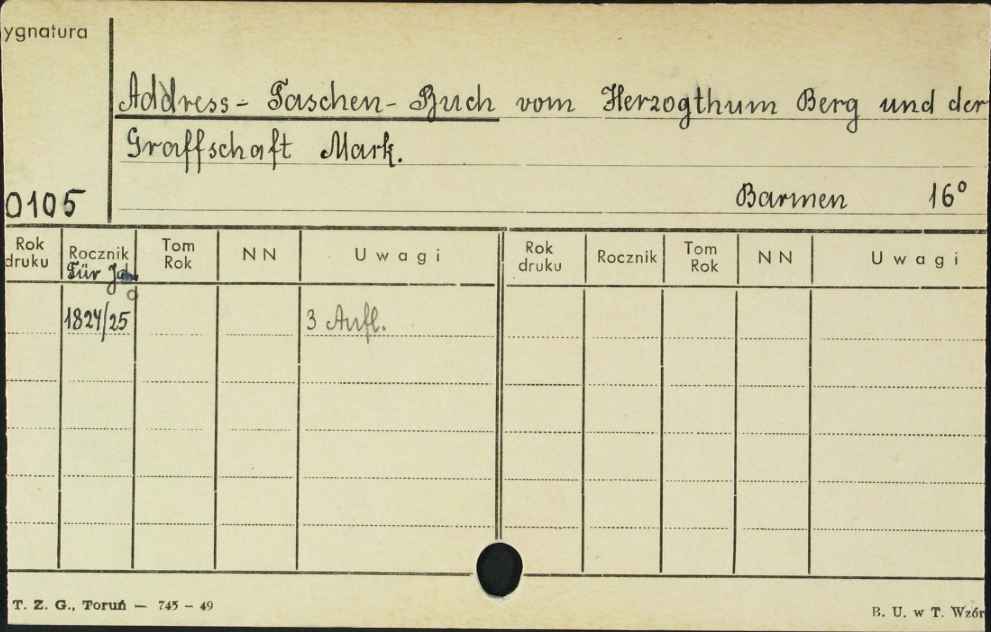 ygnatura
Address- Taschen- Buch vom Herzogthum Berg und der
Graffschaft Mark.
0105
Barmen 16°
Rok druku Rocznik Tom Rok NN Uwagi Rok druku Rocznik Tom Rok NN Uwagi
Für
1824/25 3 Aufl.
T. Z. G., Toruń — 745 - 49
B. U. w T. Wzór